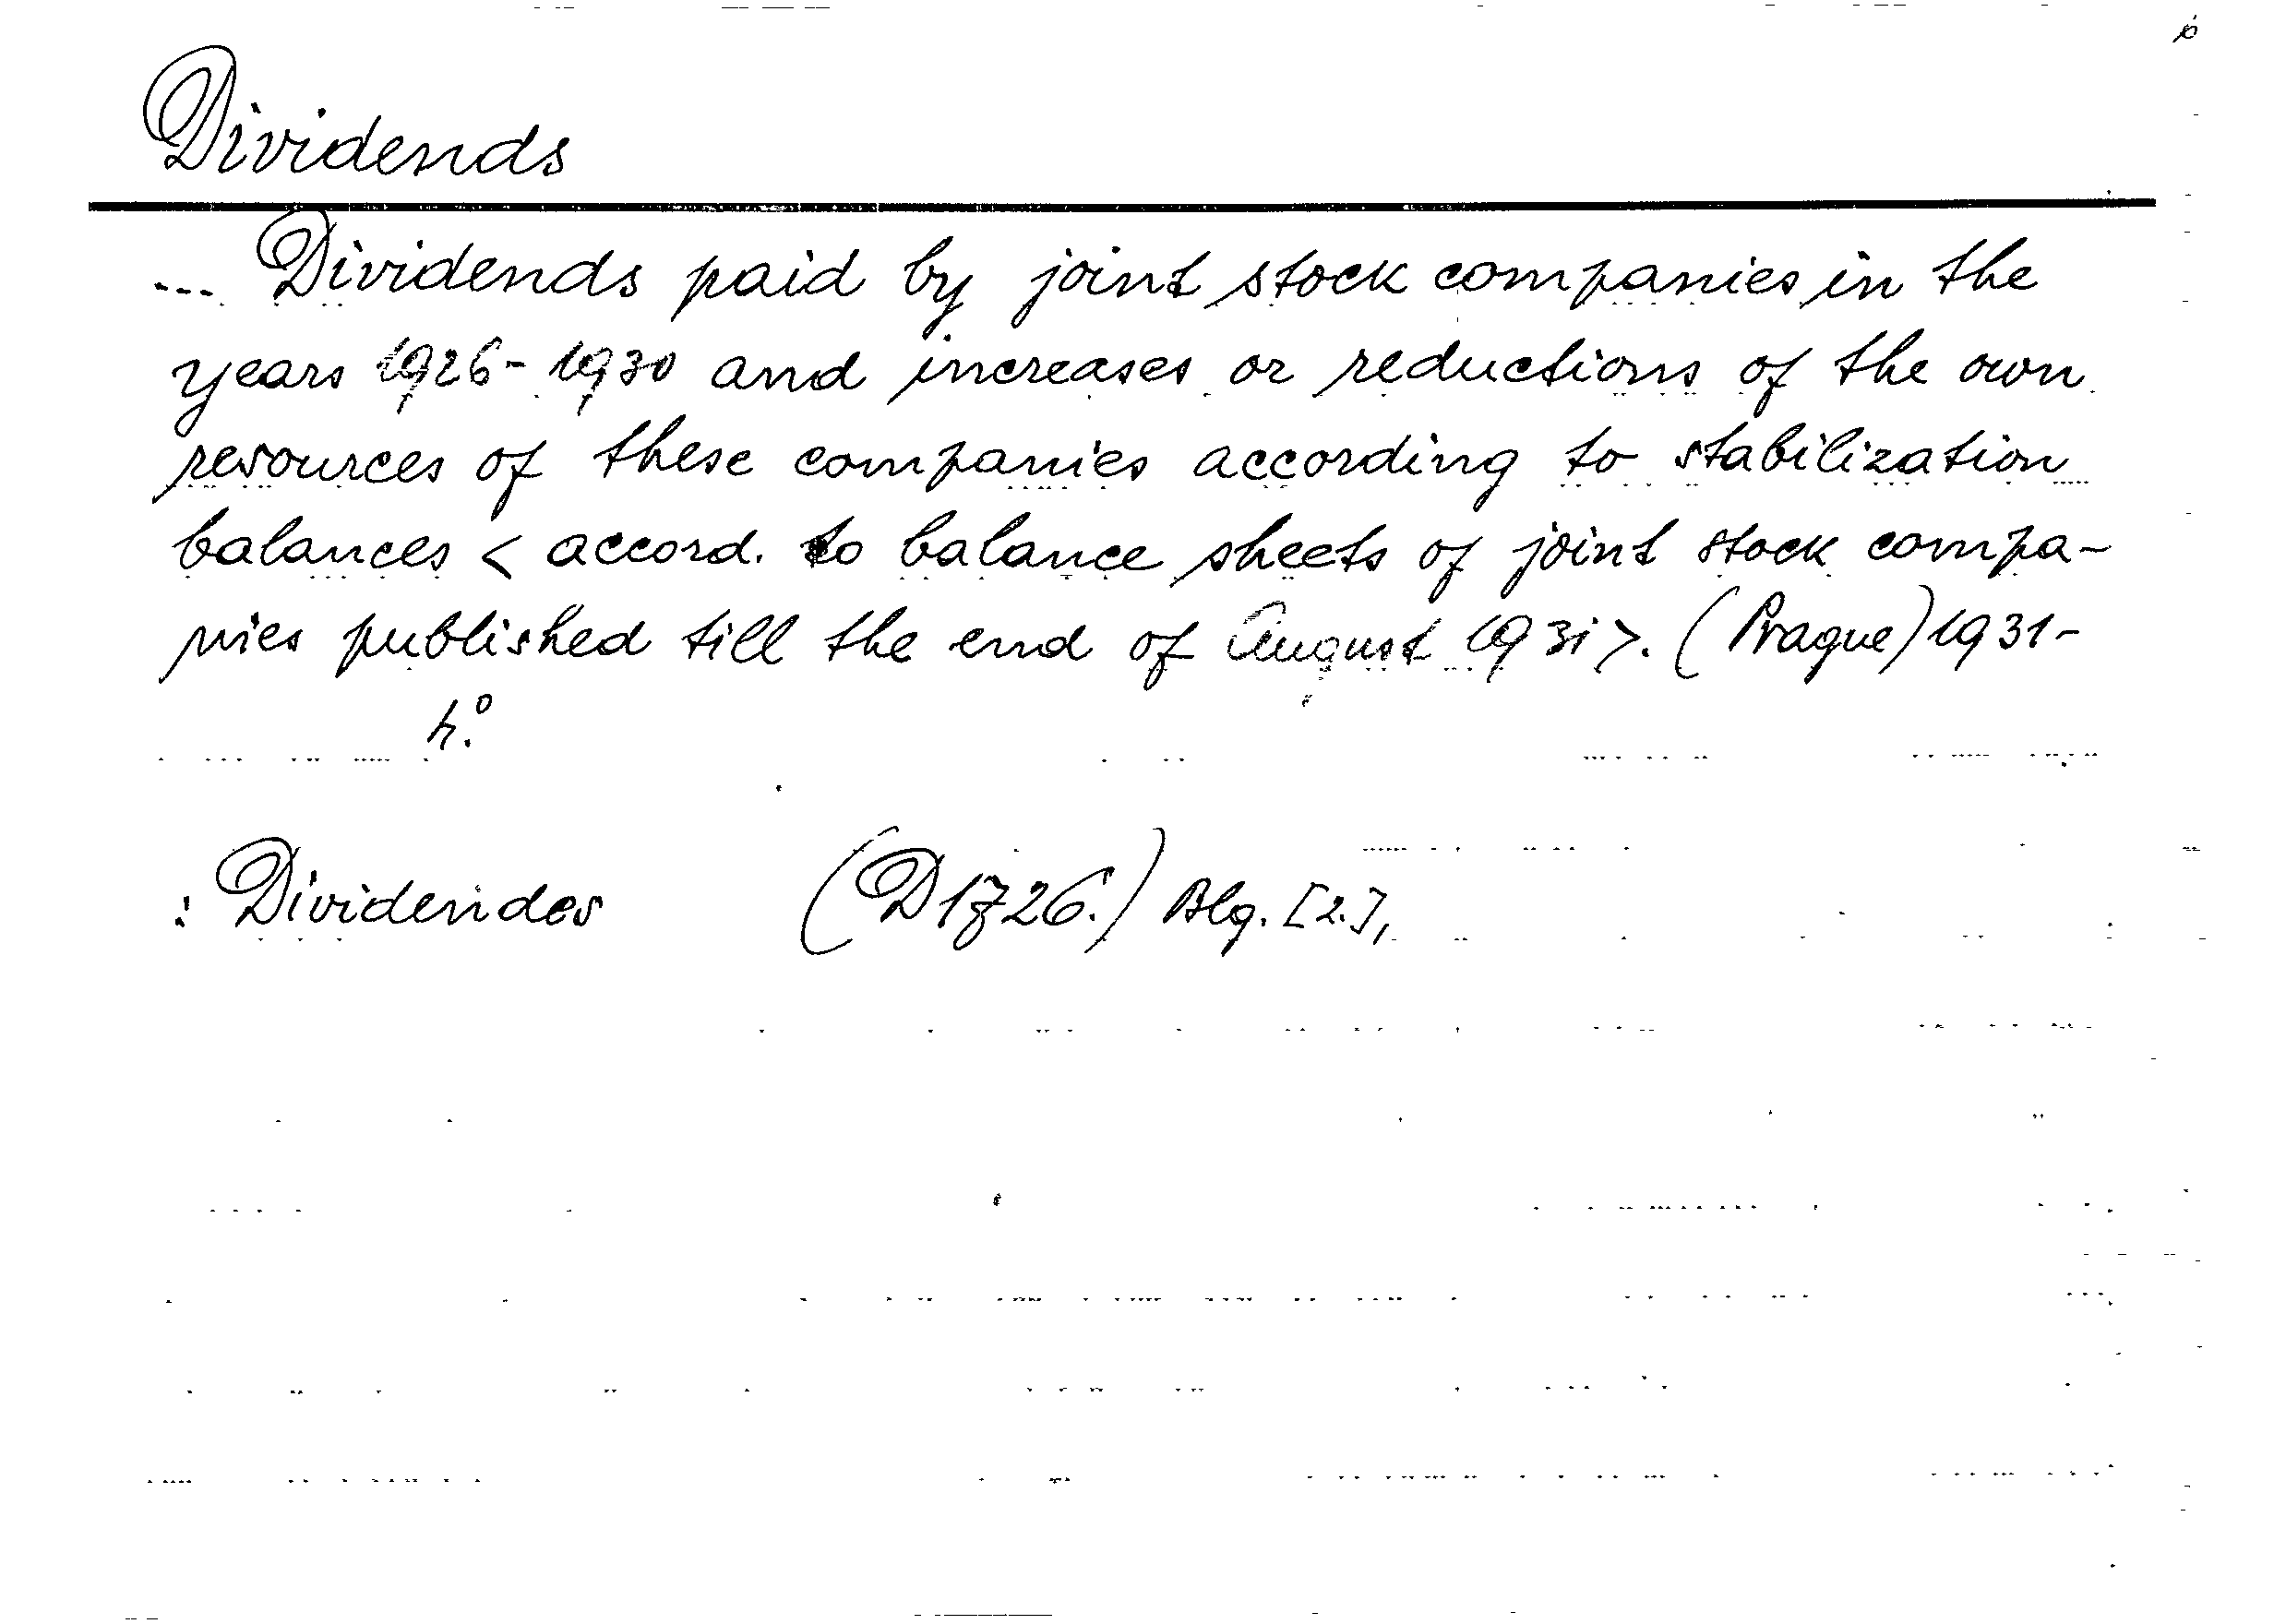 Dividends
... Dividends paid by joint stock companies in the
years 1926-1930 and increases or reductions of the own
resources of these companies according to stabilization
balances < accord. to balance sheets of joint stock compa-
nies published till the end of August 1931>. (Prague) 1931-
4.°
: Dividendes (D1726.) Blg. [2.],